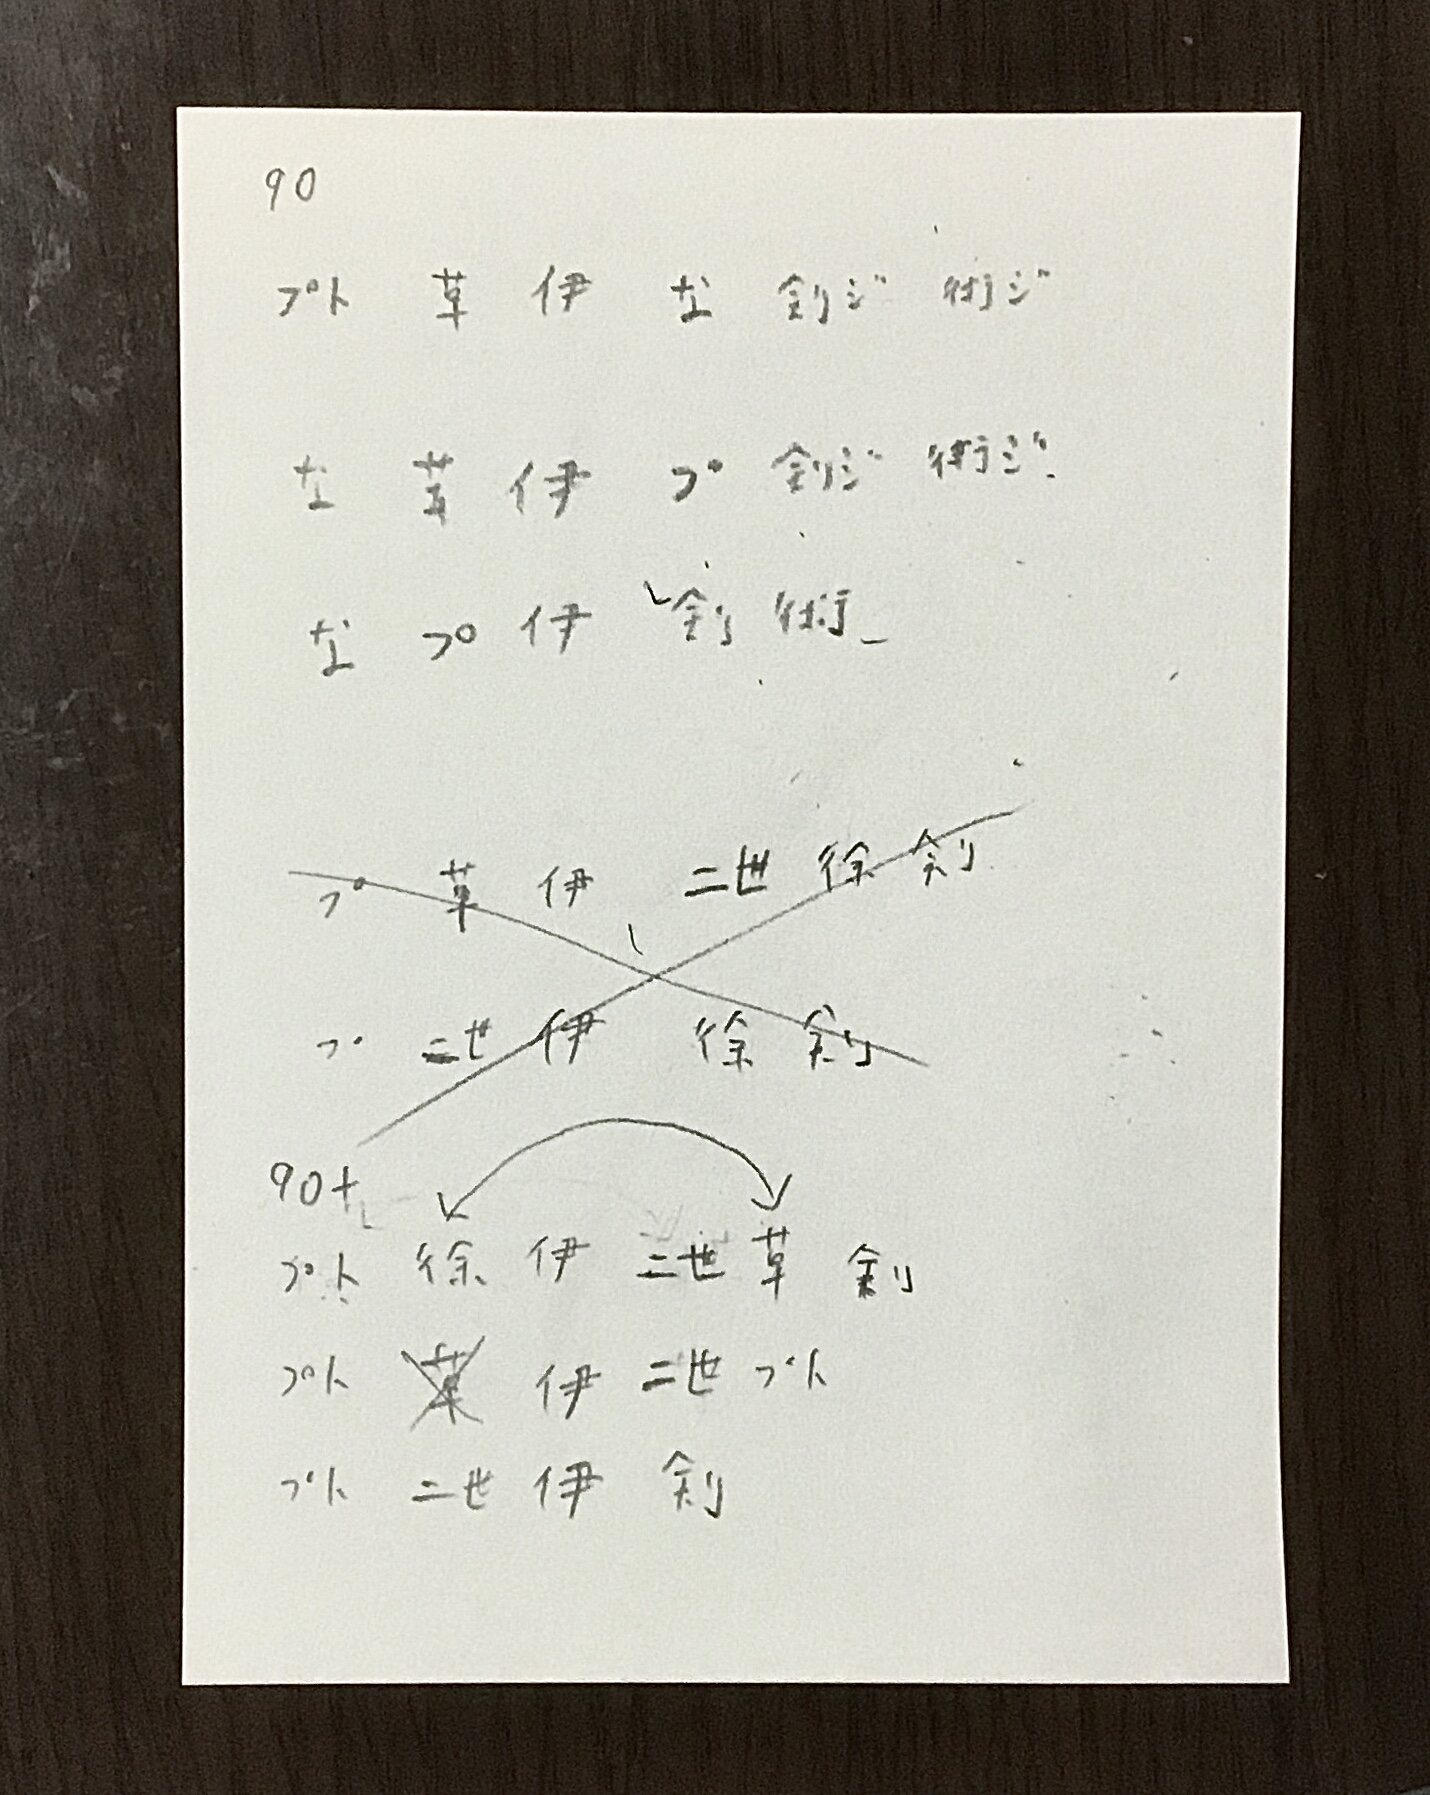 90
プト 草 伊 な 剣ジ 術ジ
な 草 伊 プ 剣ジ 術ジ
な プ 伊 剣 術
プ 草 伊 二世 徐 剣
プ 二世 伊 徐 剣
90+
プト 徐 伊 二世 草 剣
プト 草 伊 二世 プト
プト 二世 伊 剣